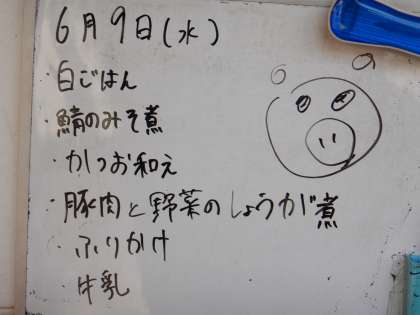 6月9日(水)
・白ごはん
・鯖のみそ煮
・かつお和え
・豚肉と野菜のしょうが煮
・ふりかけ
・牛乳